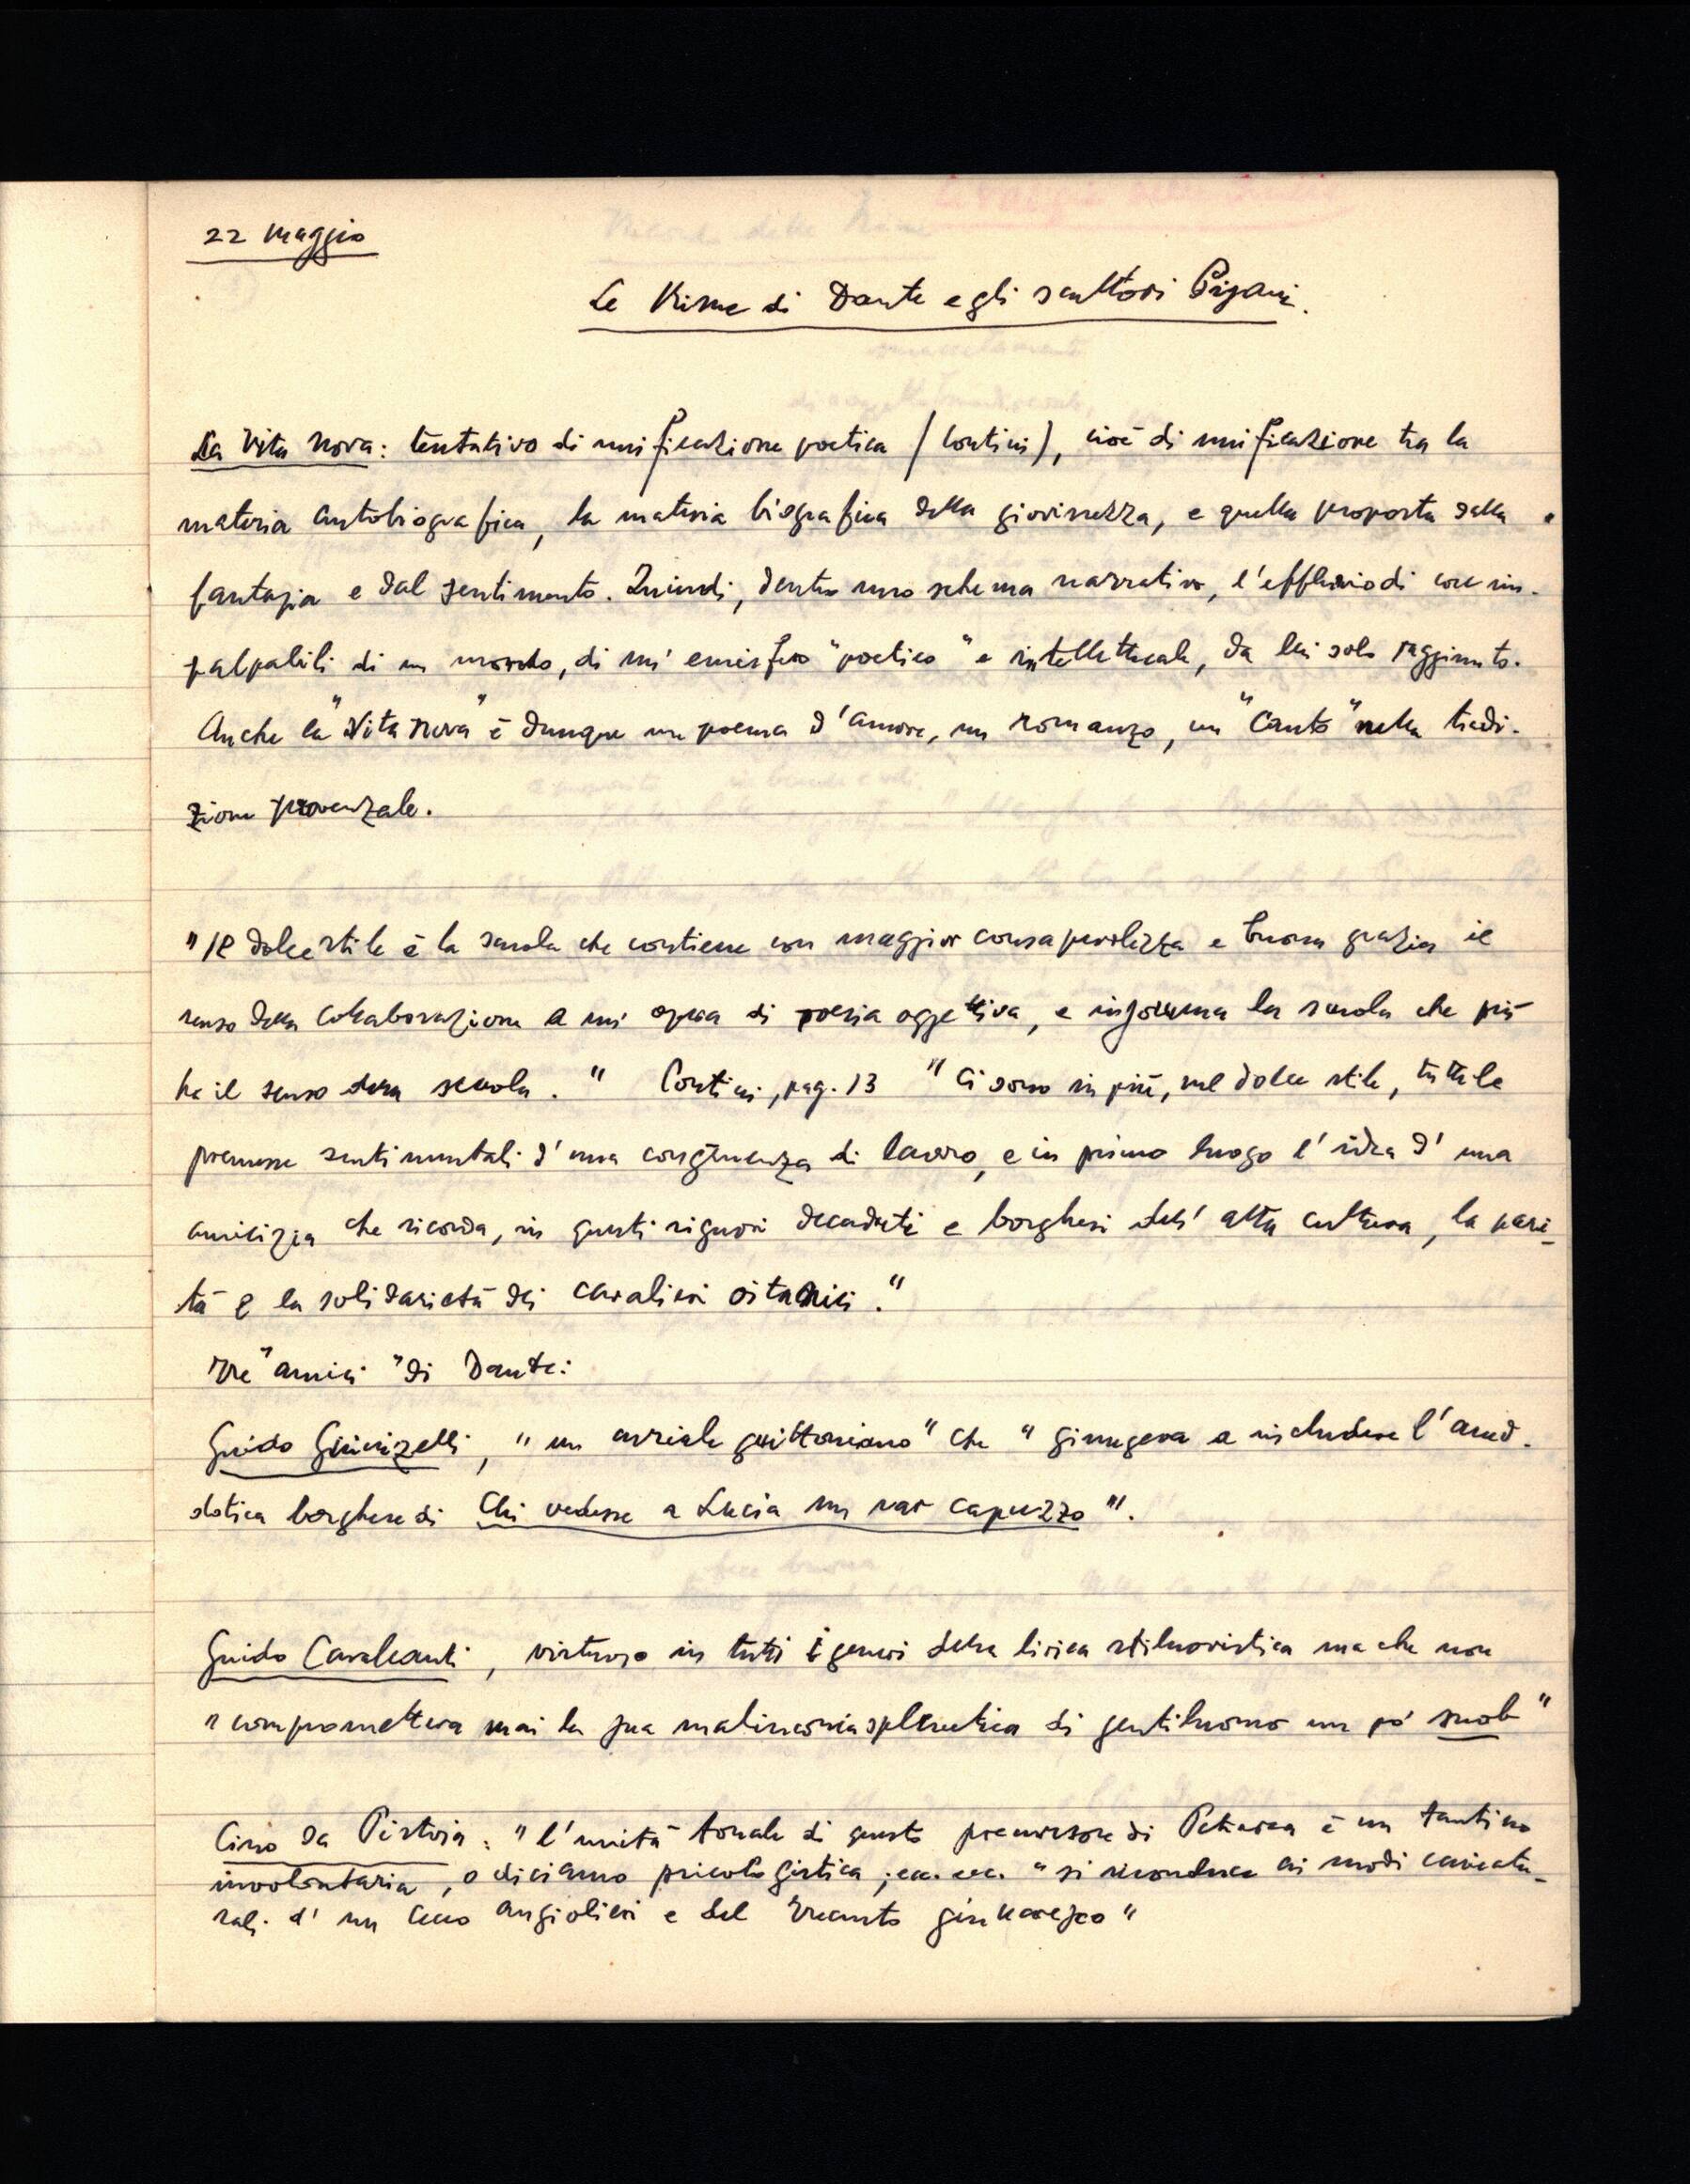 22 maggio
Le Rime di Dante e gli scultori Pisani.
La Vita Nova: tentativo di unificazione poetica (Contini), cioè di unificazione tra la
materia autobiografica, la materia biografica della giovinezza, e quella proposta dalla
fantasia e dal sentimento. Quindi, dentro uno schema narrativo, l'effluvio di cose im-
palpabili di un mondo, di un' emisfero "poetico" e intellettuale, da lui solo raggiunto.
Anche la "Vita nova" è dunque un poema d'amore, un romanzo, un "Canto" nella tradi-
zione provenzale.
"Il dolce stile è la scuola che contiene con maggior consapevolezza e buona grazia il
senso della collaborazione a un' opera di poesia oggettiva, e insomma la scuola che più
ha il senso della scuola." Contini, pag. 13 "Ci sono in più, nel dolce stile, tutte le
premesse sentimentali d'una congruenza di lavoro, e in primo luogo l'idea d'una
amicizia che ricorda, in questi signori decaduti e borghesi dell'alta cultura, la pari-
tà e la solidarietà dei cavalieri occitanici."
Tre "amici" di Dante:
Guido Guinizelli, "un arriale guittoniano" che "giungeva a includere l'aned-
dotica borghese di Chi vedesse a Lucia un var capuzzo".
Guido Cavalcanti, virtuoso in tutti i generi della lirica stilnovistica ma che non
"comprometteva mai la sua malinconia splenetica di gentiluomo un pó snob"
Cino da Pistoia: "l'unità tonale di questo precursore di Petrarca è un tantino
involontaria, o diciamo psicologistica; ecc. ecc. "si riconduce ai modi caricatu-
rali d'un Cecco Angiolieri e del Trecento giullaresco"